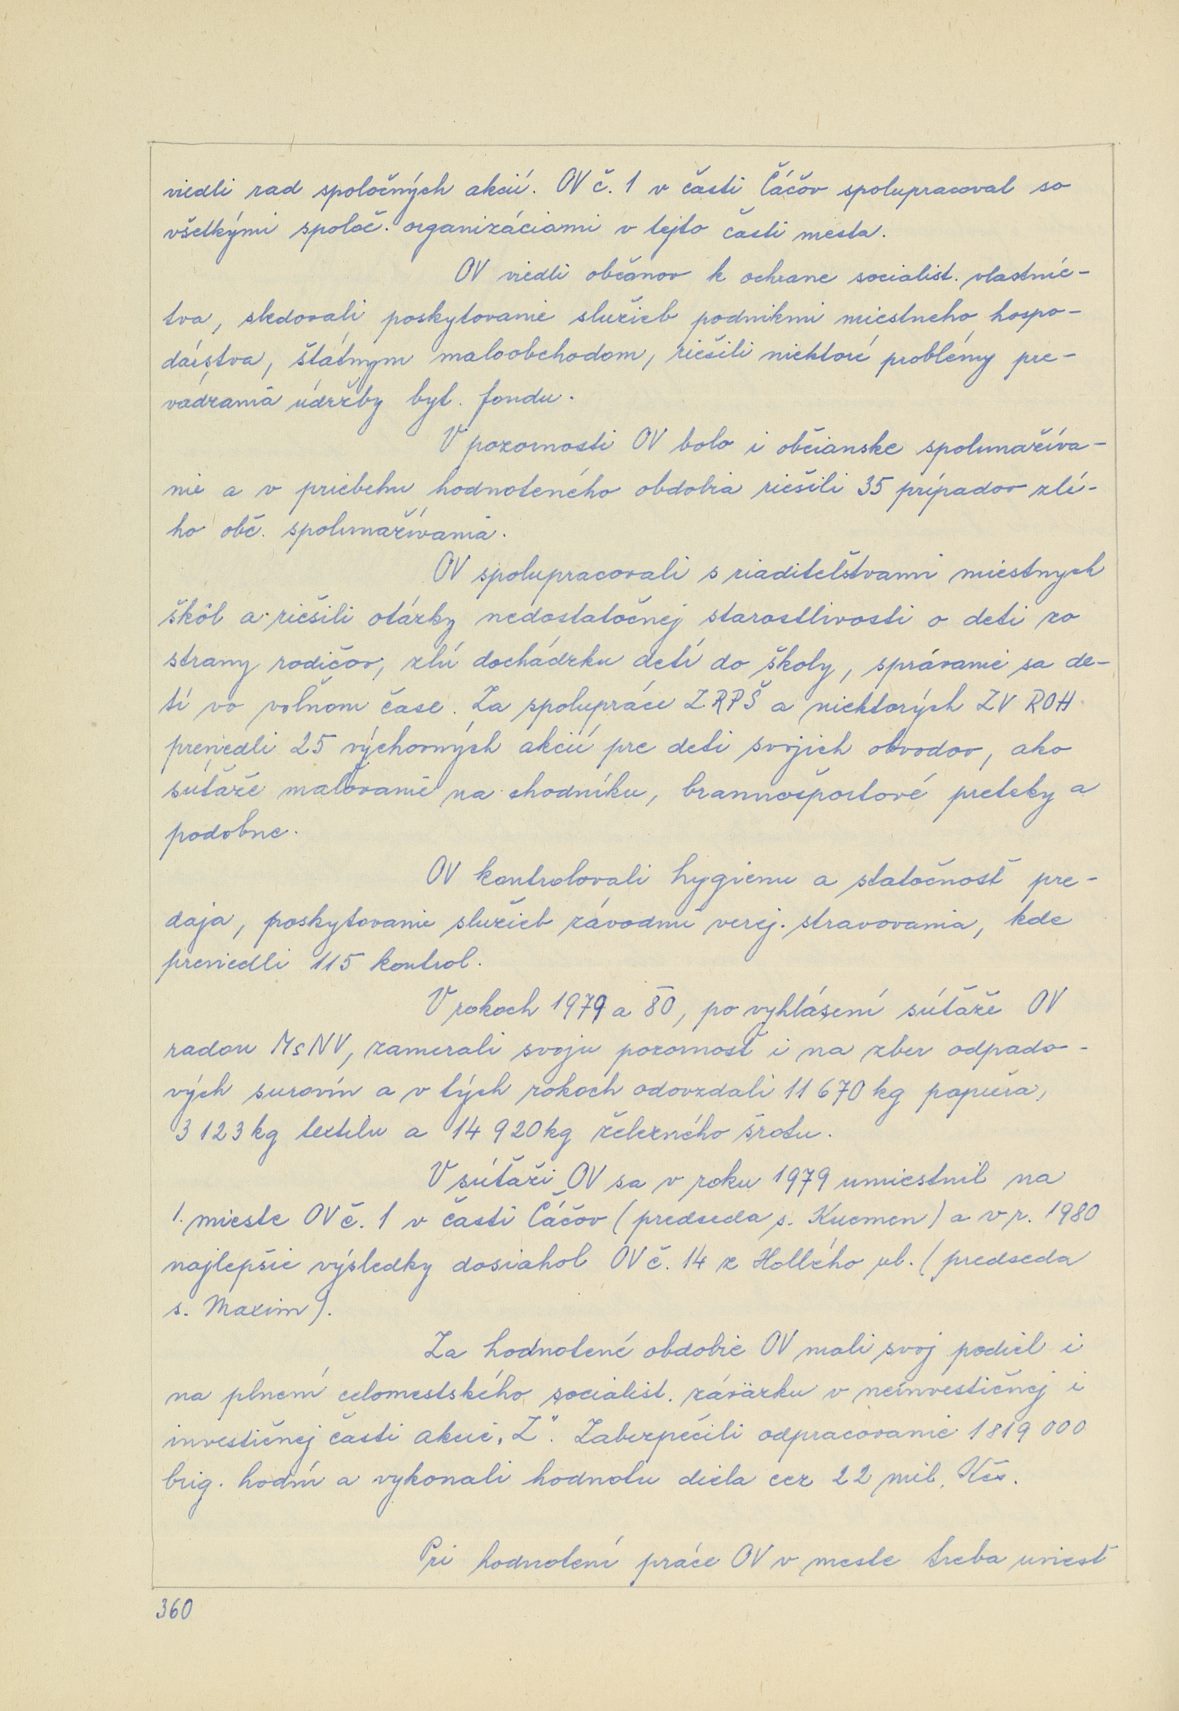 viedli rad spoločných akcií. OV č. 1 v časti Čáčov spolupracoval so
všetkými spoloč. organizáciami v tejto časti mesta.
OV viedli občanov k ochrane socialist. vlastníc-
tva, sledovali poskytovanie služieb podnikmi miestneho hospo-
dárstva, štátnym maloobchodom, riešili niektoré problémy pre-
vádzania údržby byt. fondu.
V pozornosti OV bolo i občianske spolunažíva-
nie a v priebehu hodnoteného obdobia riešili 35 prípadov zlé-
ho obč. spolunažívania.
OV spolupracovali s riaditeľstvami miestnych
škôl a riešili otázky nedostatočnej starostlivosti o deti zo
strany rodičov, zlú dochádzku detí do školy, správanie sa de-
tí vo voľnom čase. Za spolupráce ZRPŠ a niektorých ZV ROH
previedli 25 výchovných akcií pre deti svojich obvodov, ako
súťaže maľovanie na chodníku, brannošportové preteky a
podobne.
OV kontrolovali hygienu a statočnosť pre-
daja, poskytovanie služieb závodmi verej. stravovania, kde
previedli 115 kontrol.
V rokoch 1979 a 80, po vyhlásení súťaže OV
radou MsNV, zamerali svoju pozornosť i na zber odpado-
vých surovín a v tých rokoch odovzdali 11 670 kg papiera,
3 123 kg textilu a 14 920 kg železného šrotu.
V súťaži OV sa v roku 1979 umiestnil na
1. mieste OV č. 1 v časti Čáčov (predseda s. Kucmen) a v r. 1980
najlepšie výsledky dosiahol OV č. 14 z Hollého ul. (predseda
s. Maxim).
Za hodnotené obdobie OV mali svoj podiel i
na plnení celomestského socialist. záväzku v neinvestičnej i
investičnej časti akcie „Z“. Zabezpečili odpracovanie 1 819 000
brig. hodín a vykonali hodnotu diela cez 22 mil. Kčs.
Pri hodnotení práce OV v meste treba uviesť
360